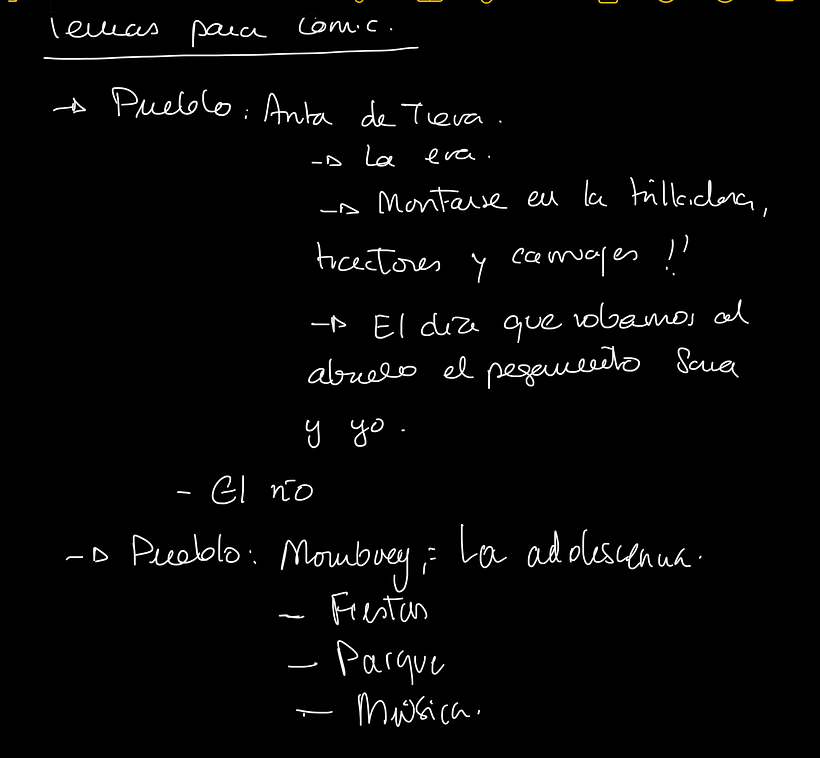 Temas para Comic.
→ Pueblo: Anta de Tera.
→ La era.
→ Montarse en la trilladora,
tractores y carruajes !!
→ El día que robamos al
abuelo el pegamento Sara
y yo.
- El río
→ Pueblo: Mombuey,= La adolescencia.
- Fiestas
- Parque
- Música.